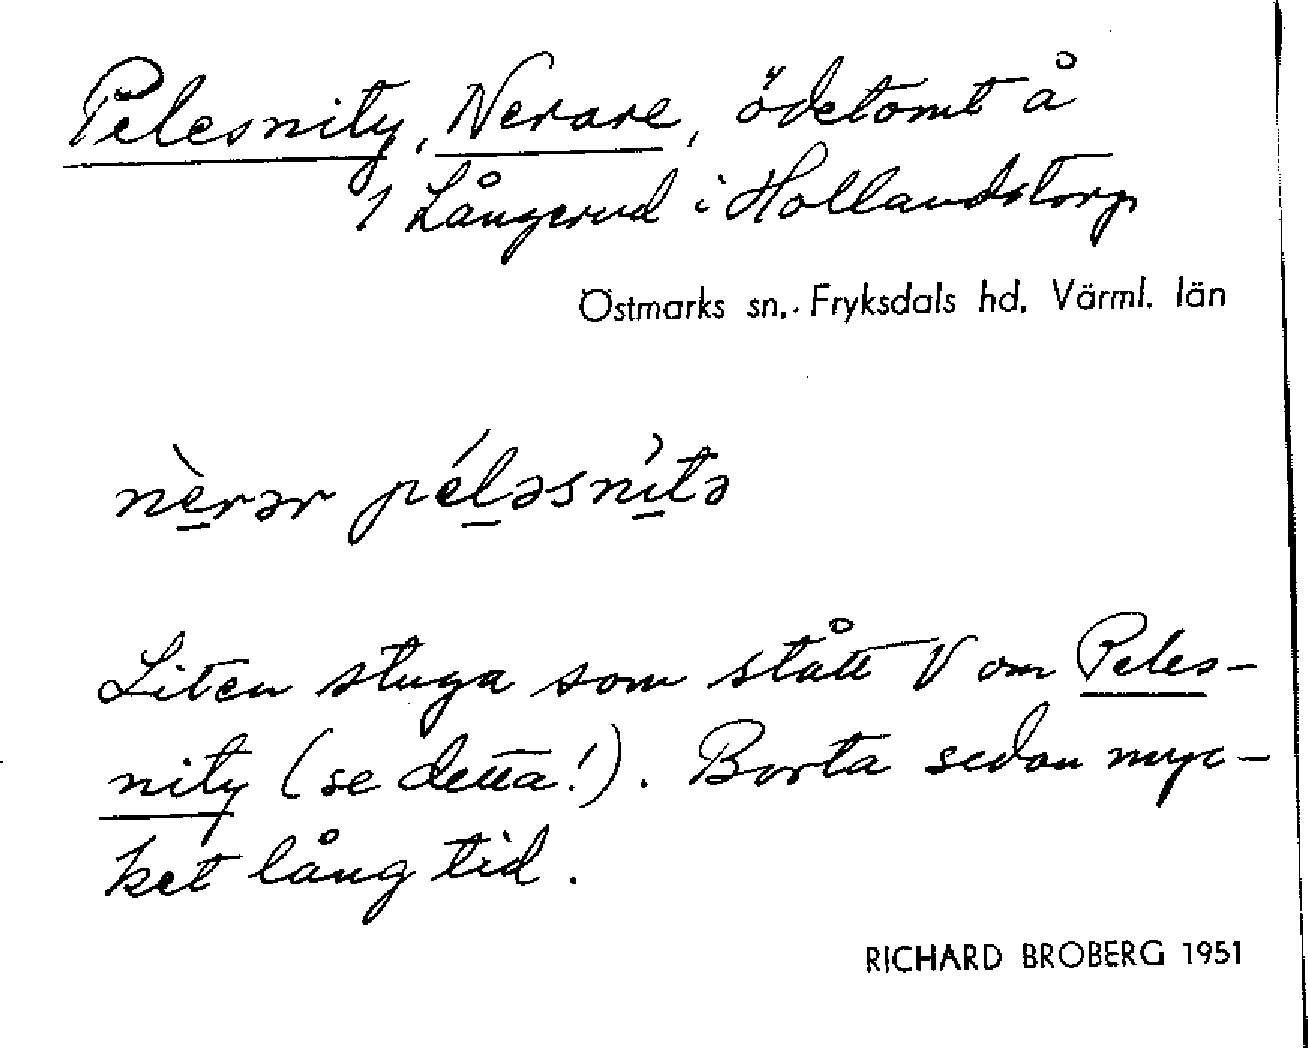 Pelesnity, Nerare, ödetomt å
1 Långerud i Hollandstorp
Östmarks sn., Fryksdals hd. Värml. län
nè̲rər pél̲əsní̲tə
Liten stuga som stått V om Peles-
nity (se detta!). Borta sedan myc-
ket lång tid.
RICHARD BROBERG 1951